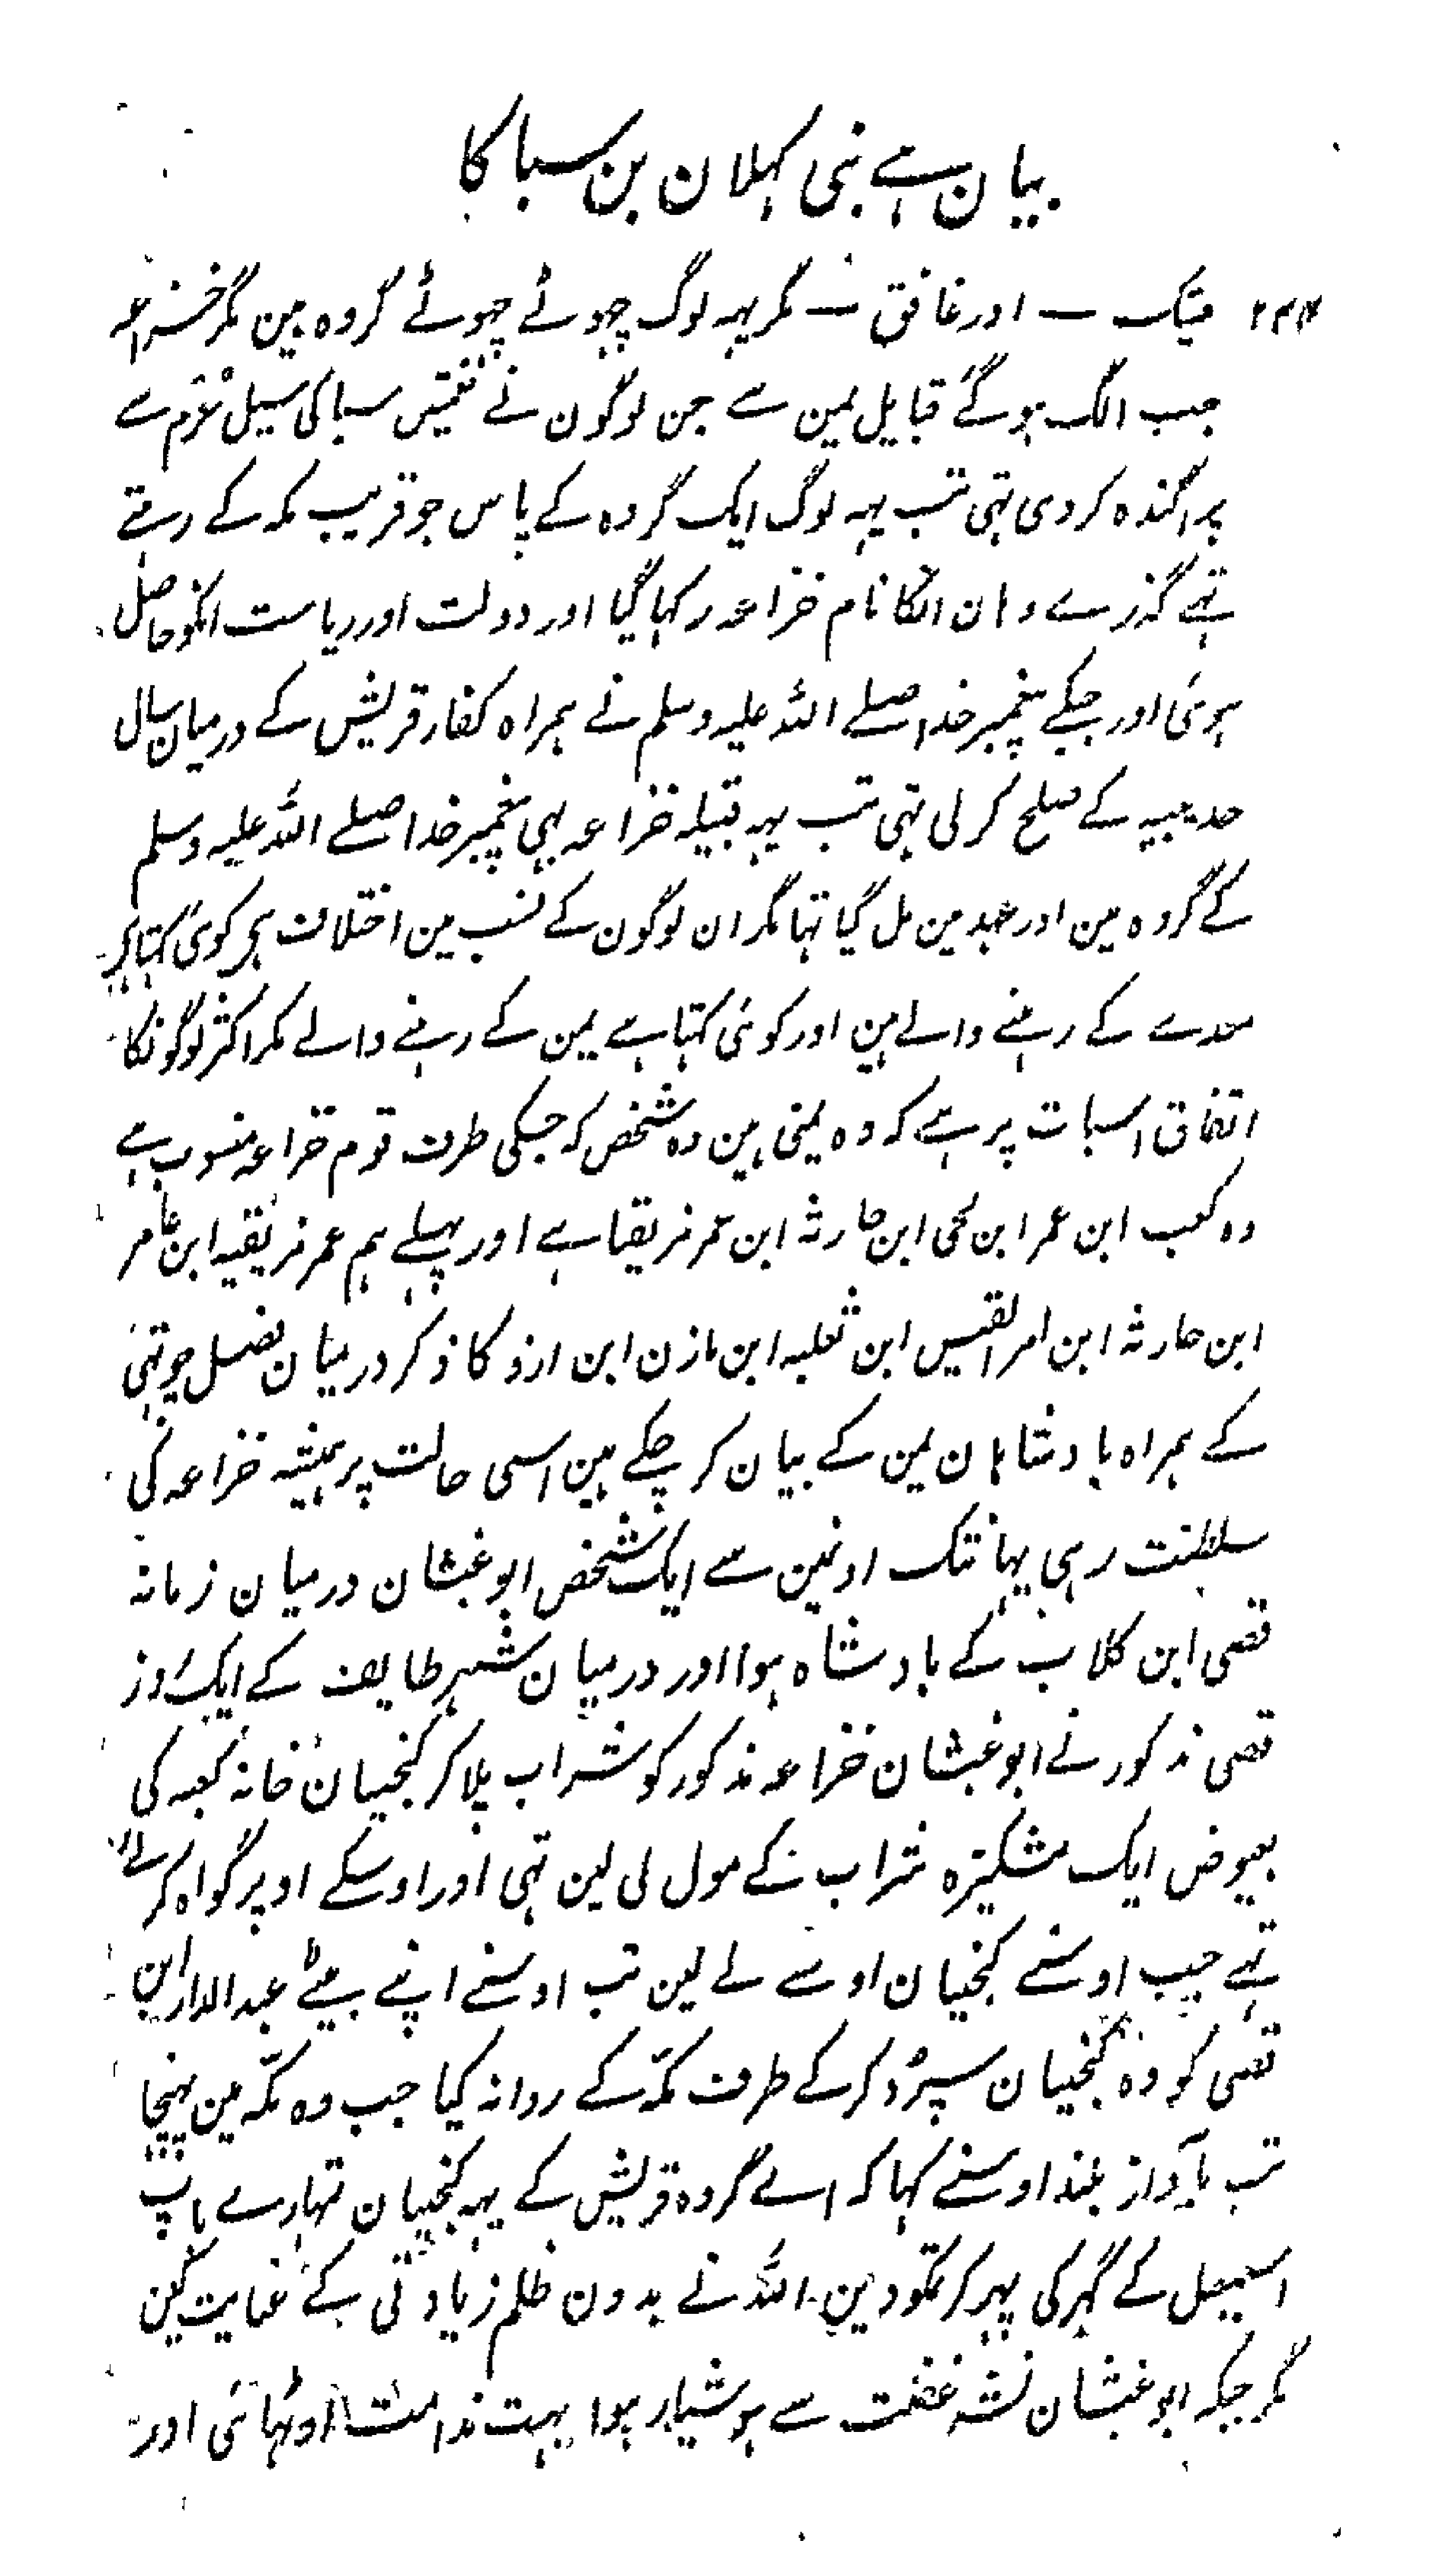 بیان ہے بنی کہلان بن سبا کا
عتیک — اور غافق — مگر یہہ لوگ چہوٹے چہوٹے گروہ ہین مگر خزاعہ
جب الگ ہو گئے قبایل یمن سے جن لوگون نے نعمتیں سبا کی سیل عرم سے
پراگندہ کر دی تہی تب یہہ لوگ ایک گروہ کے پاس جو قریب مکہ کے رہتے
تہے گذرے وہان انکا نام خزاعہ رکہا گیا اور دولت اور ریاست انکو حاصل
ہوئی اور جبکے پیغمبر خدا صلے اللہ علیہ وسلم نے ہمراہ کفار قریش کے درمیان سال
حدیبیہ کے صلح کر لی تہی تب یہہ قبیلہ خزاعہ بہی پیغمبر خدا صلے اللہ علیہ وسلم
کے گروہ مین اور عہد مین مل گیا تہا مگر ان لوگون کے نسب مین اختلاف ہی کوی کہتا ہی
معدے کے رہنے والے ہین اور کوئی کہتا ہے یمن کے رہنے والے مگر اکثر لوگونکا
اتفاق اسبات پر ہے کہ وہ یمنی ہین وہ شخص کہ جسکی طرف قوم خزاعہ منسوب ہے
وہ کعب ابن عمر ابن لحی ابن حارثہ ابن عمر مزیقیا ہے اور پہلے ہم عمر مزیقیہ ابن عامر
ابن حارثہ ابن امرالقیس ابن ثعلبہ ابن مازن ابن ازد کا ذکر درمیان فصل چوتہی
کے ہمراہ بادشاہان یمن کے بیان کر چکے ہین اسی حالت پر ہمیشہ خزاعہ کی
سلطنت رہی یہانتک اونمین سے ایک شخص ابو غبشان درمیان زمانہ
قصی ابن کلاب کے بادشاہ ہوا اور درمیان شہر طایف کے ایک روز
قصی مذکور نے ابو غبشان خزاعہ مذکور کو شراب پلا کر کنجیان خانہ کعبہ کی
بعیوض ایک مشکیزہ شراب کے مول لی لین تہی اور اوسکے اوپر گواہ کر لئے
تہے جب اوسنے کنجیان اوسے لے لین تب اوسنے اپنے بیٹے عبدالدار ابن
قصی کو وہ کنجیان سپرد کر کے طرف مکہ کے روانہ کیا جب وہ مکہ مین پہنچا
تب بآواز بلند اوسنے کہا کہ اے گروہ قریش کے یہہ کنجیان تمہارے باپ
اسمعیل کے گہر کی پہر کر تمکو دین اللہ نے بدون ظلم زیادتی کے عنایت کین
مگر جبکہ ابو غبشان نشہ غفلت سے ہوشیار ہوا بہت ندامت اوٹہائی اور